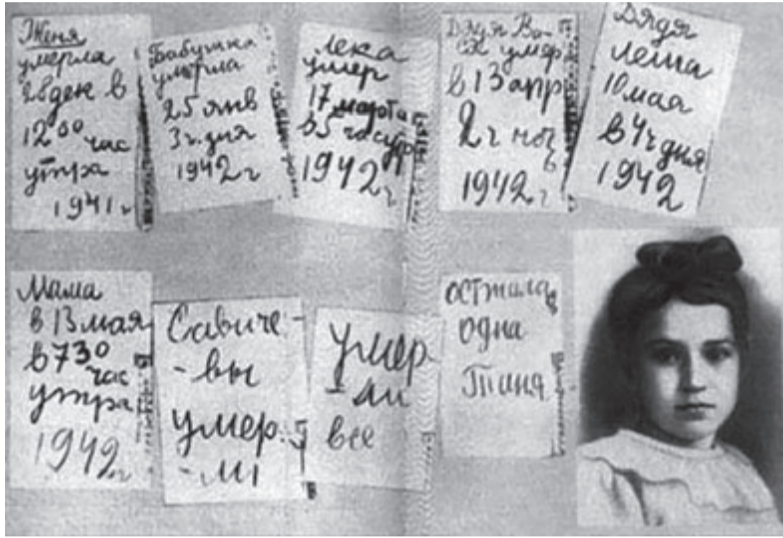 Женя
умерла
28 ден в
12 00 час
утра
1941 г
Бабушка
умерла
25 янв
3 ч. дня
1942 г
Лека
умер
17 марта
в 5 час утр
1942 г
Дядя Ва-
ся умер
в 13 апр
2 ч ноч
1942 г
Дядя
Леша
10 мая
в 4 ч дня
1942
Мама
в 13 мая
в 7 30
час
утра
1942 г
Савиче-
-вы
умер
-ли
умер
-ли
все
осталась
одна
Таня